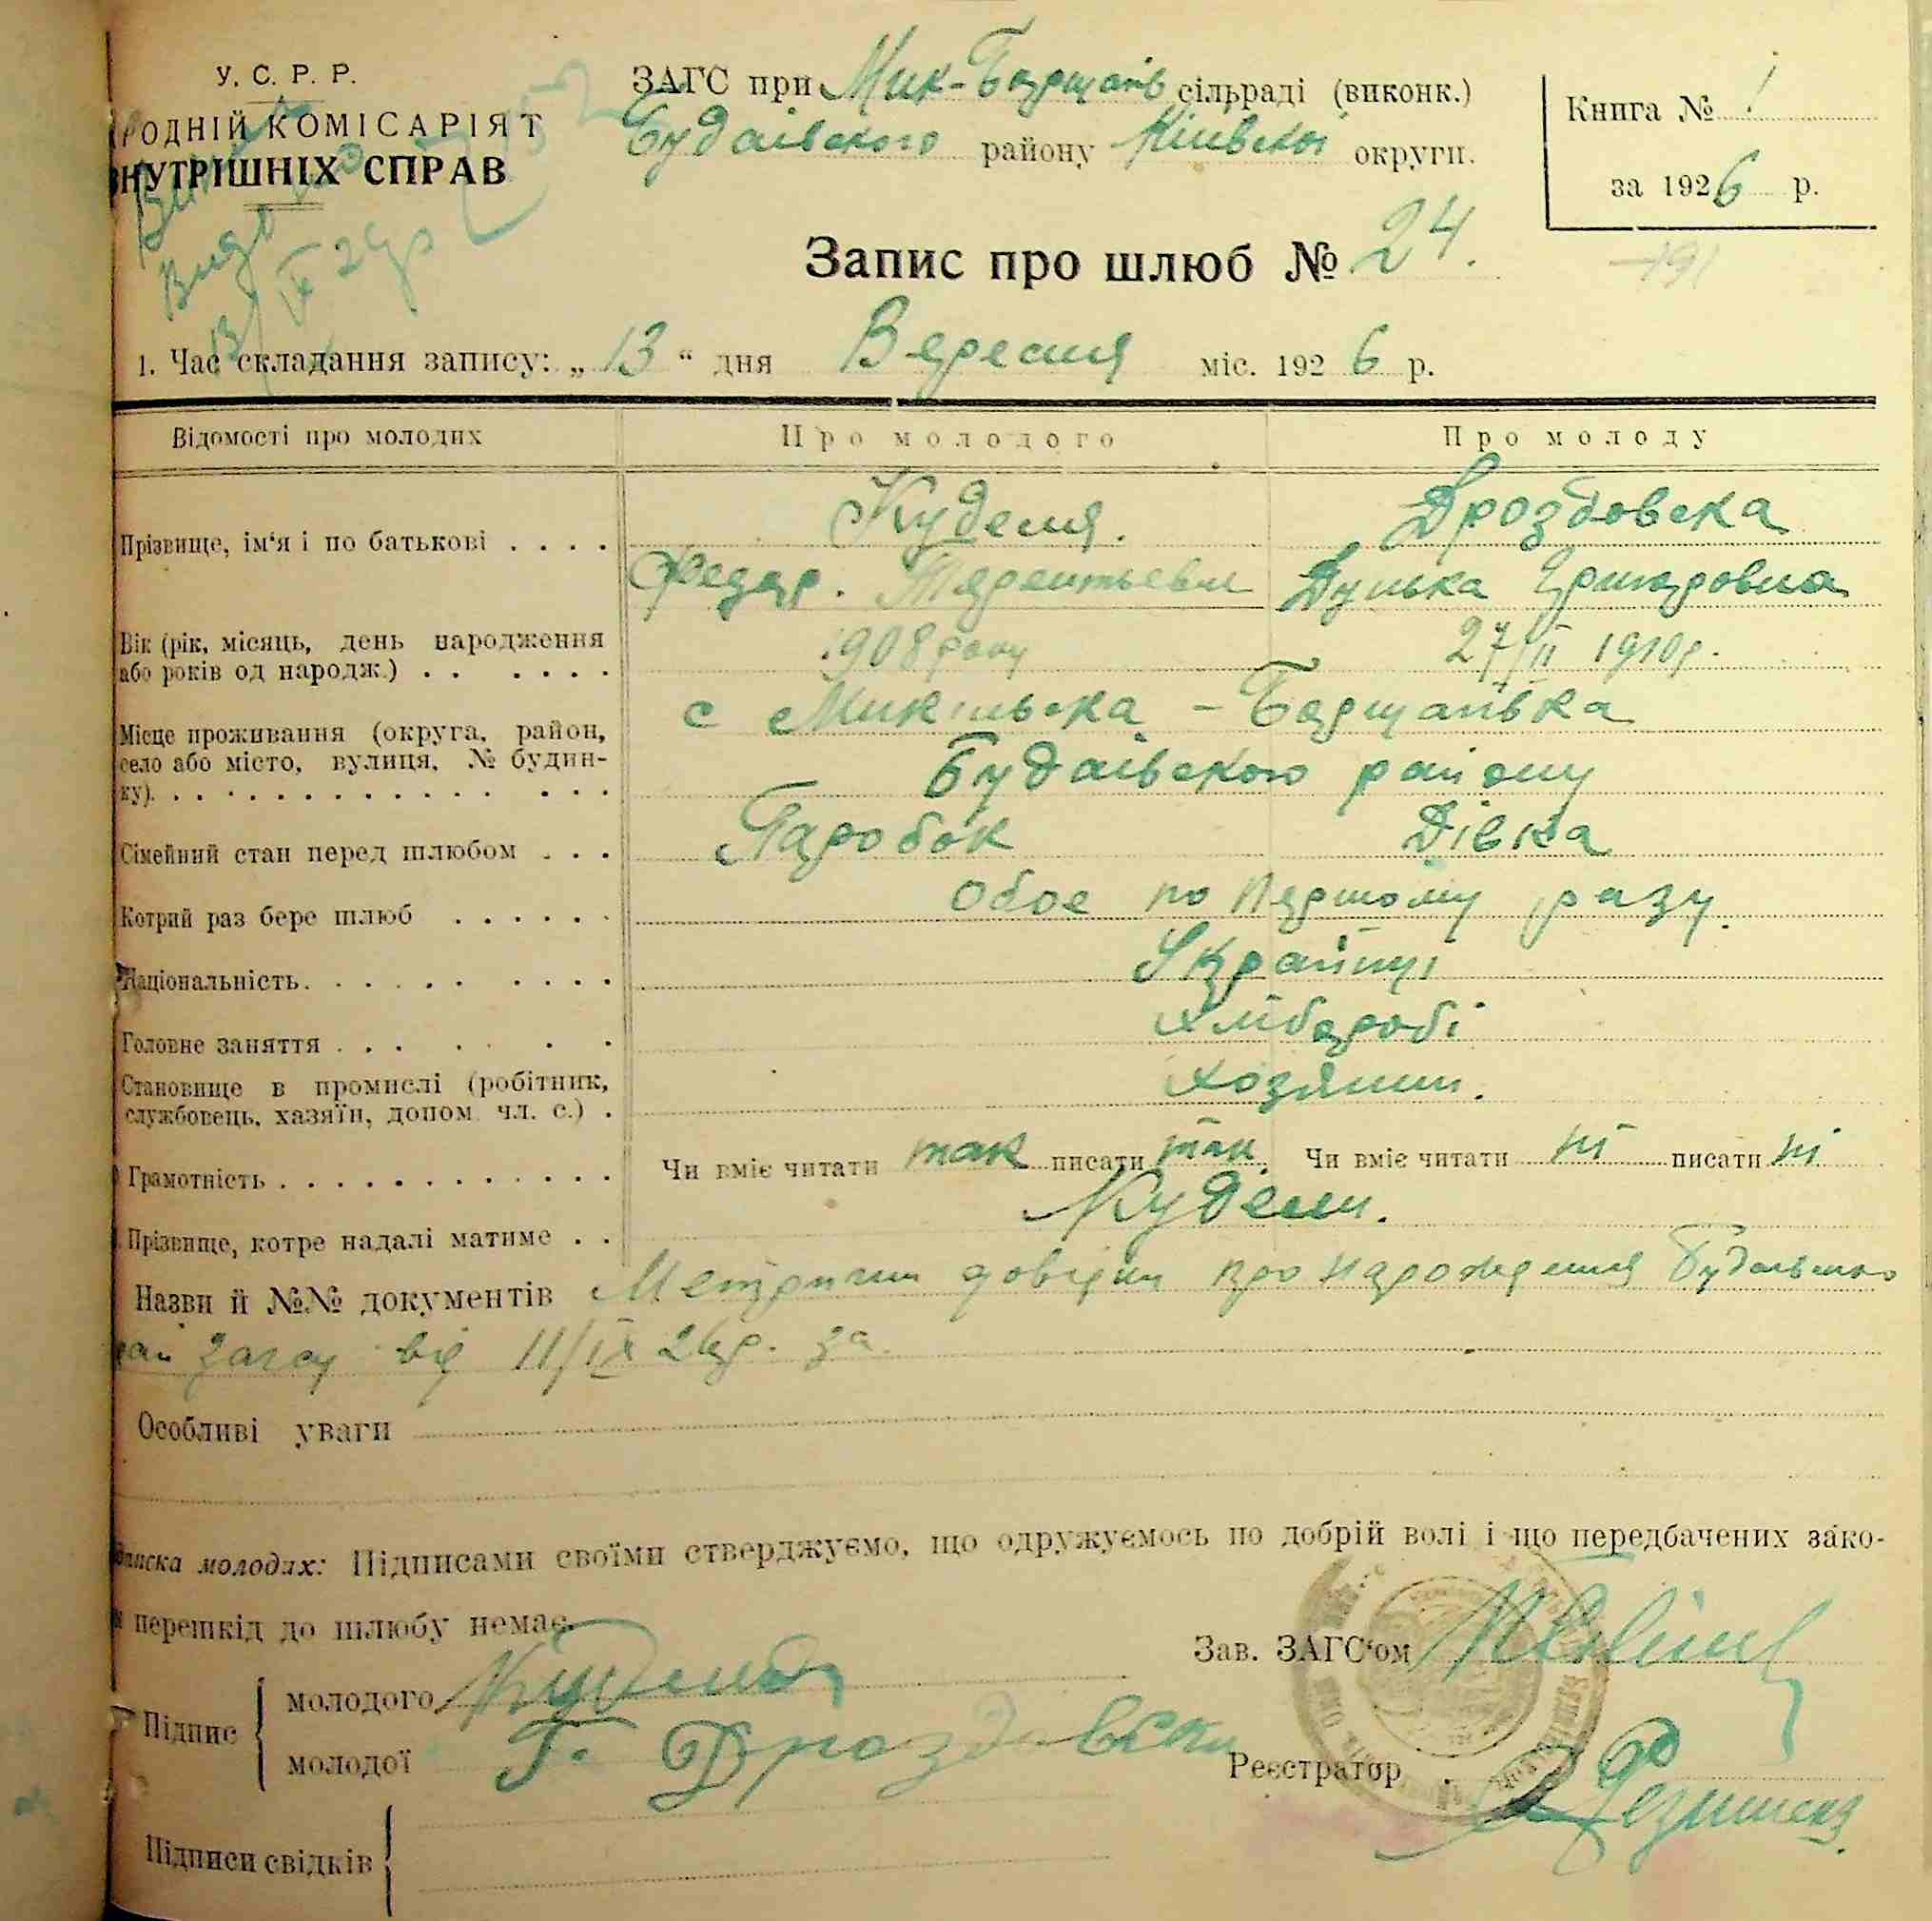 У. С. Р. Р.
РОДНІЙ КОМІСАРІЯТ
ВНУТРІШНІХ СПРАВ
ЗАГС при Мик-Борщагів сільраді (виконк.)
Будаївського району Київської округи.
Книга № 1
за 1926 р.
Запис про шлюб № 24.
191
1. Час складання запису: „ 13 “ дня Вересня міс. 1926 р.
Відомості про молодих Про молодого Про молоду
Куделя. Дроздовська
Прізвище, ім‘я і по батькові . . . .
Федор. Терентьевич Дунька Григоровна
Вік (рік, місяць, день народження 1908 року 27/II 1910р.
або років од народж.) . . . . . .
с Микільська - Борщагівка
Місце проживання (округа, район,
село або місто, вулиця, № будин- Будаівського району
ку). . . . . . . . . . . . . . . .
Сімейний стан перед шлюбом . . . Паробок Дівка
Котрий раз бере шлюб . . . . . . Обое по першому разу.
Національність. . . . . . . . . . Українці
Головне заняття . . . . . . Хлібороби
Становище в промислі (робітник, Хозяини.
службовець, хазяїн, допом. чл. с.) .
Грамотність . . . . . . . . . . . . . Чи вміє читати так писати так. Чи вміє читати ні писати ні
Прізвище, котре надалі матиме . . Кудели.
Назви й №№ документів Метричні довідки про народження Будаївського
рай загсу від 11/IX 26р. за
Особливі уваги
писка молодих: Підписами своїми стверджуємо, що одружуємось по добрій волі і що передбачених зако-
перешкід до шлюбу немає.
Зав. ЗАГС‘ом
Підпис молодого Куделя
молодої Г. Дроздовска
Реєстратор
Підписи свідків